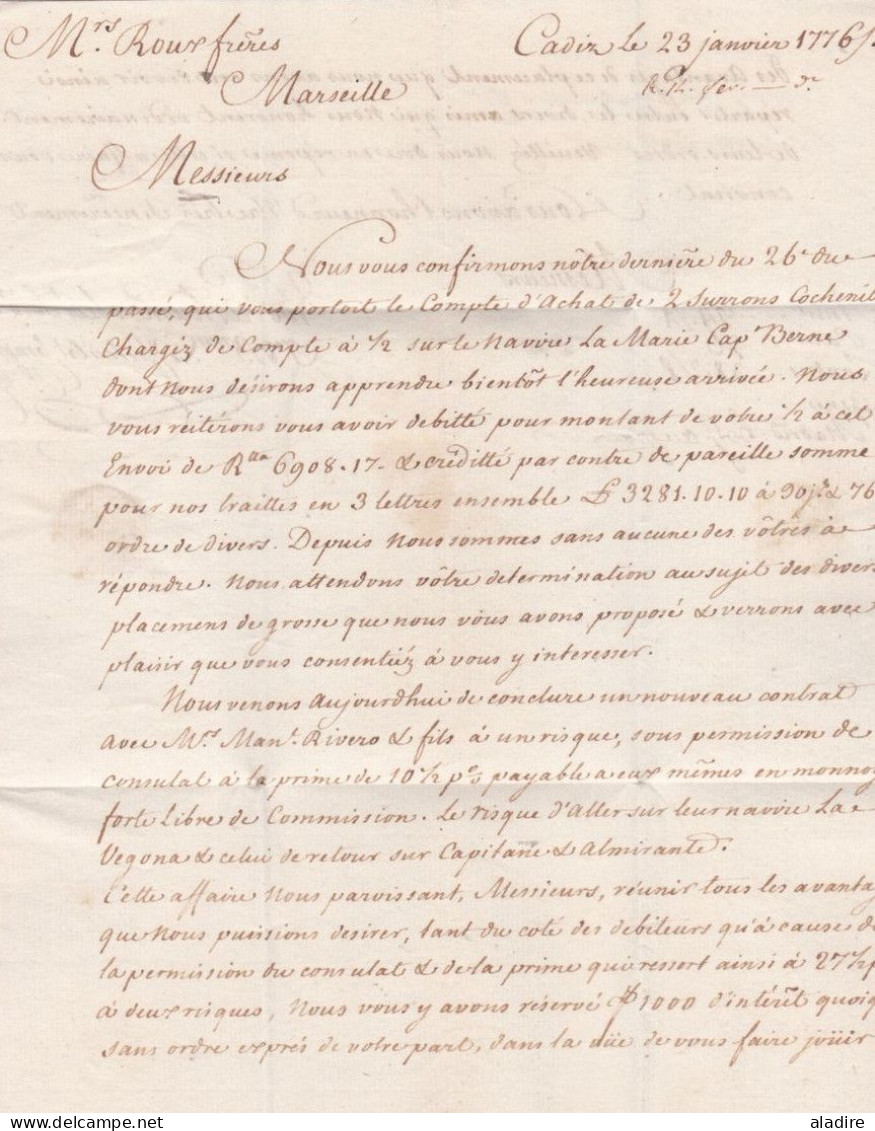 Mrs. Roux frères
Cadiz le 23 janvier 1776
Marseille
Messieurs
Nous vous confirmons nôtre derniére du 26e. du
passé, qui vous portoit le Compte d'Achat de 2 Surrons Cochenil
Chargéz de Compte à ½ sur le Navire La Marie Cap.e Berne
dont nous désirons apprendre bientôt l'heureuse arrivée. Nous
vous réitérons vous avoir debitté pour montant de votre ½ à cet
Envoi de Rna 6908.17. & créditté par contre de pareille somme
pour nos traittes en 3 lettres ensemble £ 3281.10.10 à 90 j.s & 76
ordre de divers. Depuis nous sommes sans aucune des vôtres à
répondre. Nous attendons vôtre determination au sujet des divers
placemens de grosse que nous vous avons proposé & verrons avec
plaisir que vous consentiéz à vous y interesser.
Nous venons aujourdhui de conclure un nouveau contrat
avec Mrs. Manl. Rivero & fils à un risque, sous permission de
consulat à la prime de 10½ p% payable a eux mêmes en monnoy
forte libre de Commission. Le risque d'Aller sur leur navire La
Vegona & celui de retour sur Capitane & Almirante.
Cette affaire nous paroissant, Messieurs, réunir tous les avantag
que nous puissions desirer, tant du coté des debiteurs qu'à cause d
la permission du consulat & de la prime qui ressort ainsi à 27½ p
à deux risques, Nous vous y avons réservé ₱ 1000 d'intérêt quoiq
sans ordre exprés de votre part, dans la vüe de vous faire joüir
aladire
delcampe.net